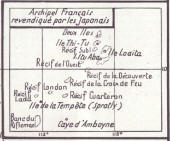 Archipel Français
revendiqué par les Japonais
Deux Iles
Ile Thi-Tu
Récif Subi
Itu Aba
Ile Loaita
Récif de l'Ouest
10
Récif de la Découverte
Récif de la Croix de Feu
Récif London
Récif Ladd
Récif Cuarteron
Ile de la Tempête (Spratly)
Banc du Riflemen
Caye d'Amboyne
112°